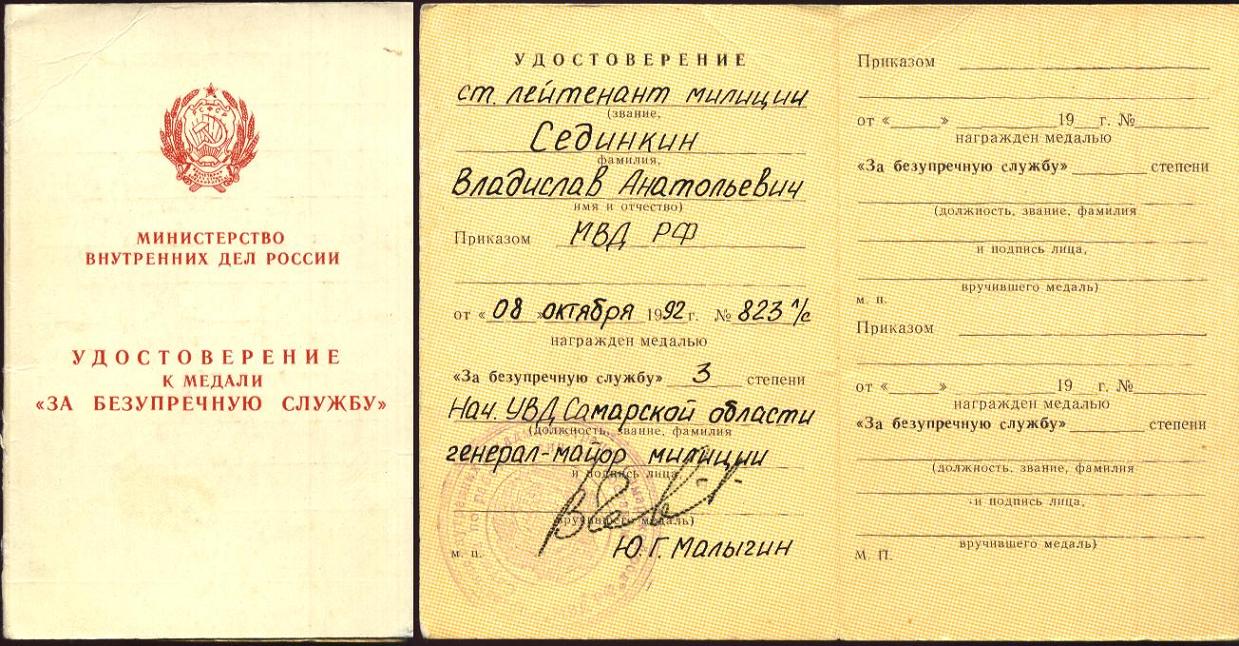 РСФСР
МИНИСТЕРСТВО
ВНУТРЕННИХ ДЕЛ РОССИИ
УДОСТОВЕРЕНИЕ
К МЕДАЛИ
«ЗА БЕЗУПРЕЧНУЮ СЛУЖБУ»
УДОСТОВЕРЕНИЕ
ст. лейтенант милиции
(звание,
Сединкин
фамилия,
Владислав Анатольевич
имя и отчество)
Приказом МВД РФ
от «08» октября 1992 г. № 823 л/с
награжден медалью
«За безупречную службу» 3 степени
Нач. УВД Самарской области
(должность, звание, фамилия
генерал-майор милиции
и подпись лица,
вручившего медаль)
м. п. Ю. Г. Малыгин
Приказом
от « » 19 г. №
награжден медалью
«За безупречную службу» степени
(должность, звание, фамилия
и подпись лица,
вручившего медаль)
м. п.
Приказом
от « » 19 г. №
награжден медалью
«За безупречную службу» степени
(должность, звание, фамилия
и подпись лица,
вручившего медаль)
М. П.